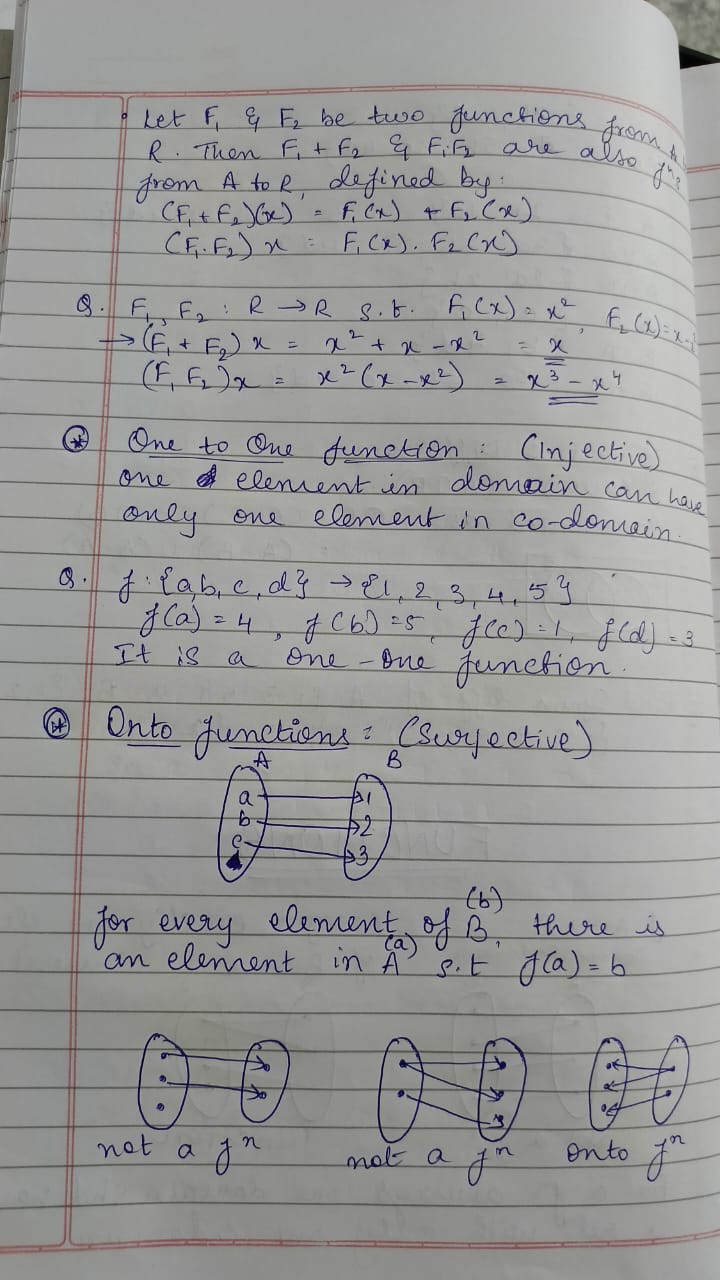 Let F₁ & F₂ be two functions from A
R. Then F₁ + F₂ & F₁F₂ are also fⁿs
from A to R, defined by:
(F₁ + F₂)(x) = F₁(x) + F₂(x)
(F₁.F₂) x = F₁(x). F₂(x)
Q. F₁, F₂ : R → R s.t. F₁(x) = x², F₂(x) = x-
→ (F₁ + F₂) x = x² + x - x² = x
(F₁ F₂)x = x² (x - x²) = x³ - x⁴
* One to One function : (Injective)
one element in domain can have
only one element in co-domain.
Q. f : {a,b, c, d} → {1, 2, 3, 4, 5}
f(a) = 4, f(b) = 5, f(c) = 1, f(d) = 3
It is a one-one function.
* Onto functions : (Surjective)
A B
a 1
b 2
c 3
(b)
for every element of B, there is
(a)
an element in A s.t f(a) = b
not a fⁿ not a fⁿ onto fⁿ